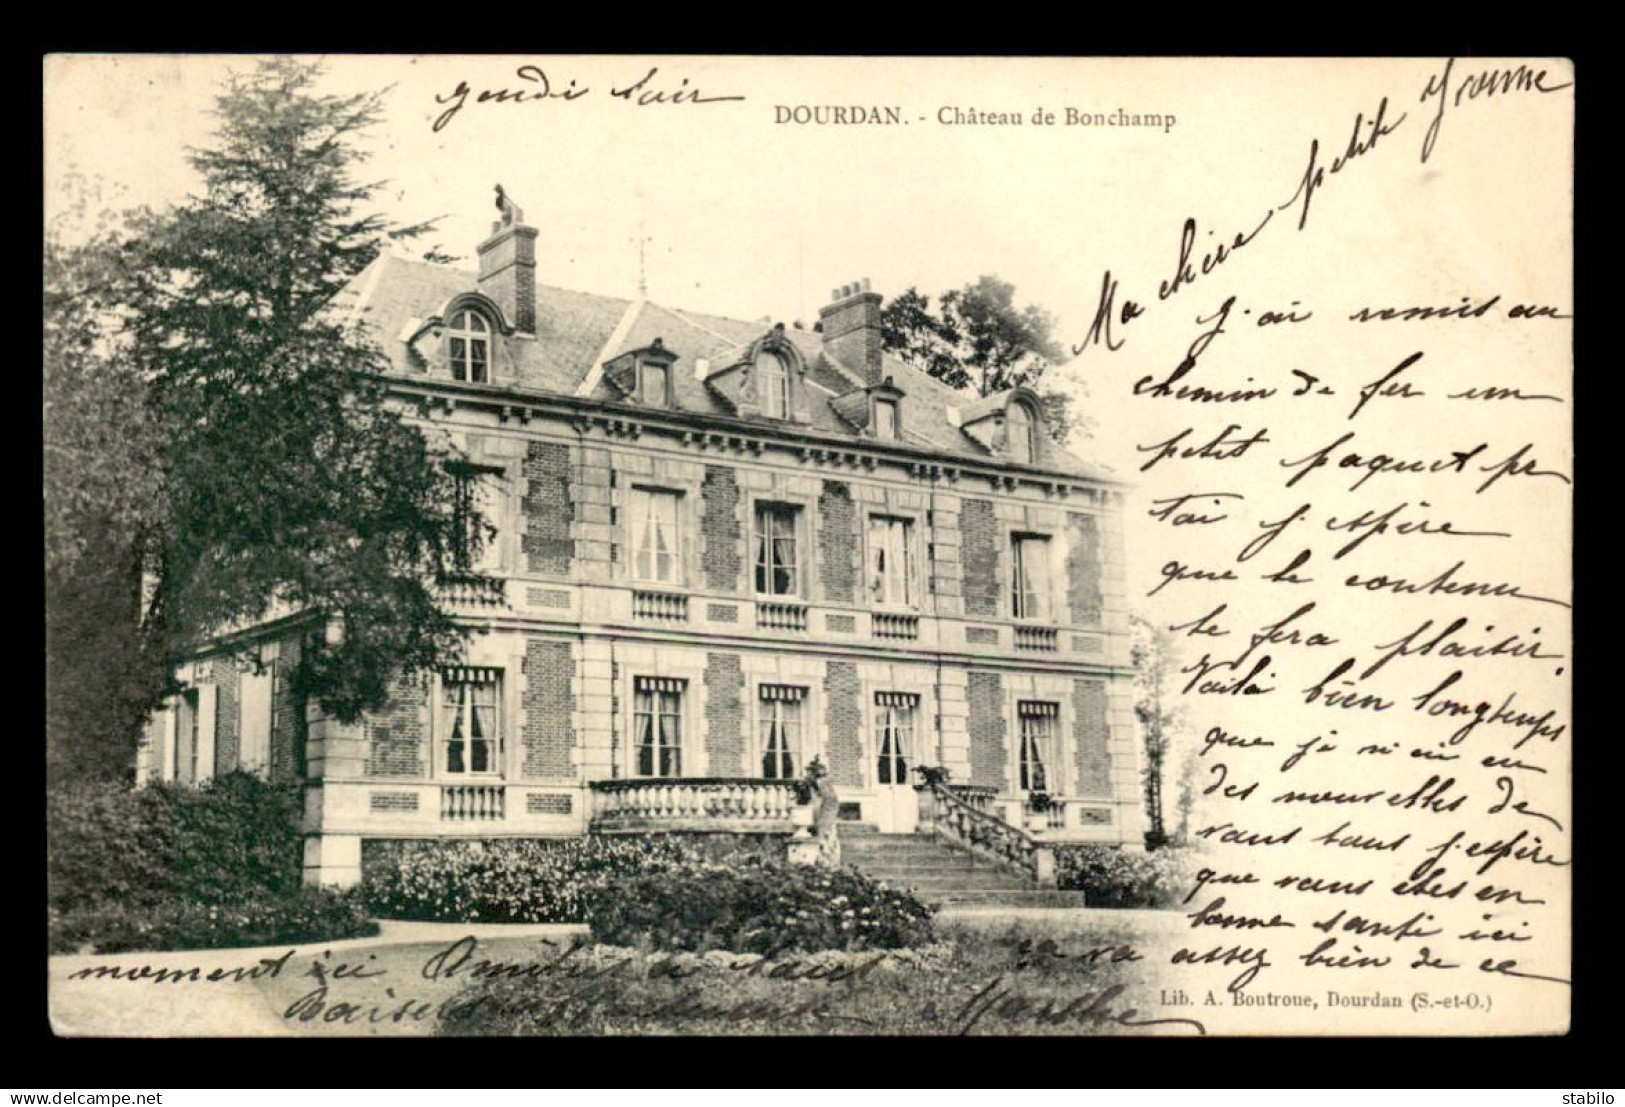 Jeudi soir
DOURDAN. - Château de Bonchamp
Ma chère petite Yvonne
J'ai remis au
chemin de fer un
petit paquet pr
toi j'espère
que le contenu
te fera plaisir.
Voilà bien longtemps
que je n'ai eu
des nouvelles de
vous tous j'espère
que vous etes en
bonne santé ici
ça va assez bien de ce
moment ici Amitiés à tous
Baisers Marthe
Lib. A. Boutroue, Dourdan (S.-et-O.)
delcampe.net
stabilo